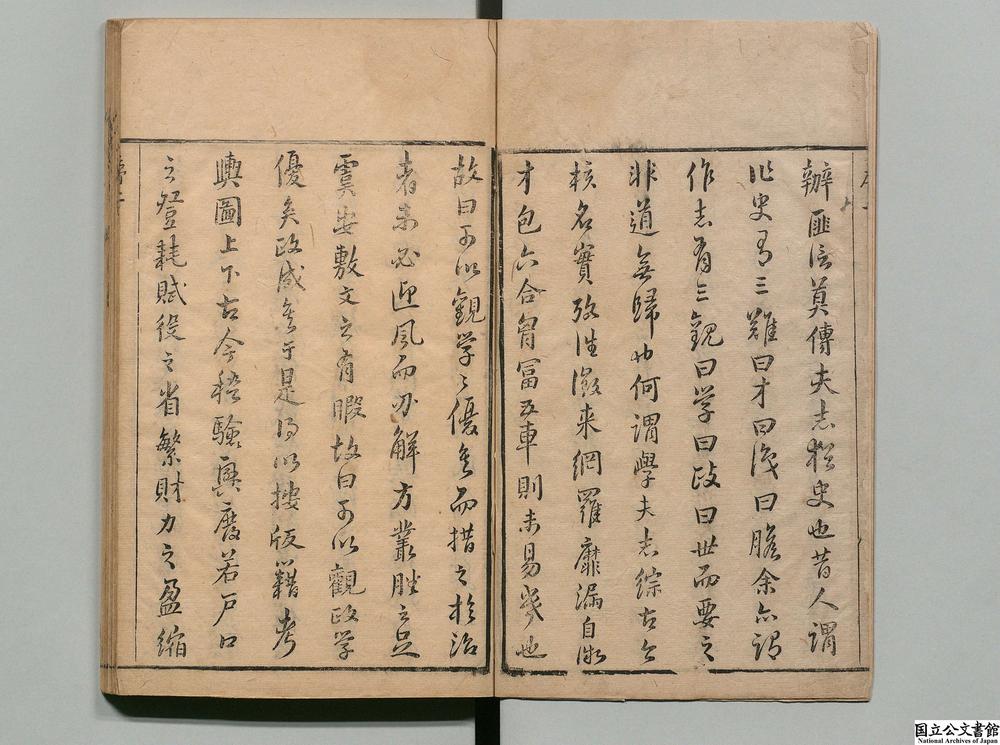 辦匪信莫傳夫志猶史也昔人謂
作史有三難曰才曰識曰膽余亦謂
作志有三觀曰学曰政曰世而要之
非道無歸也何謂學夫志綜古今
核名實攷往徵来網羅靡漏自非
才包六合胷冨五車則未易幾也
故曰可以觀学々優矣而措之於治
者未必迎風而刃解方叢脞之足
虞安敷文之有暇故曰可以觀政学
優矣政成矣于是得以摟版籍考
輿圖上下古今稽驗興廢若戸口
之登耗賦役之省繁財力之盈縮
国立公文書館
National Archives of Japan